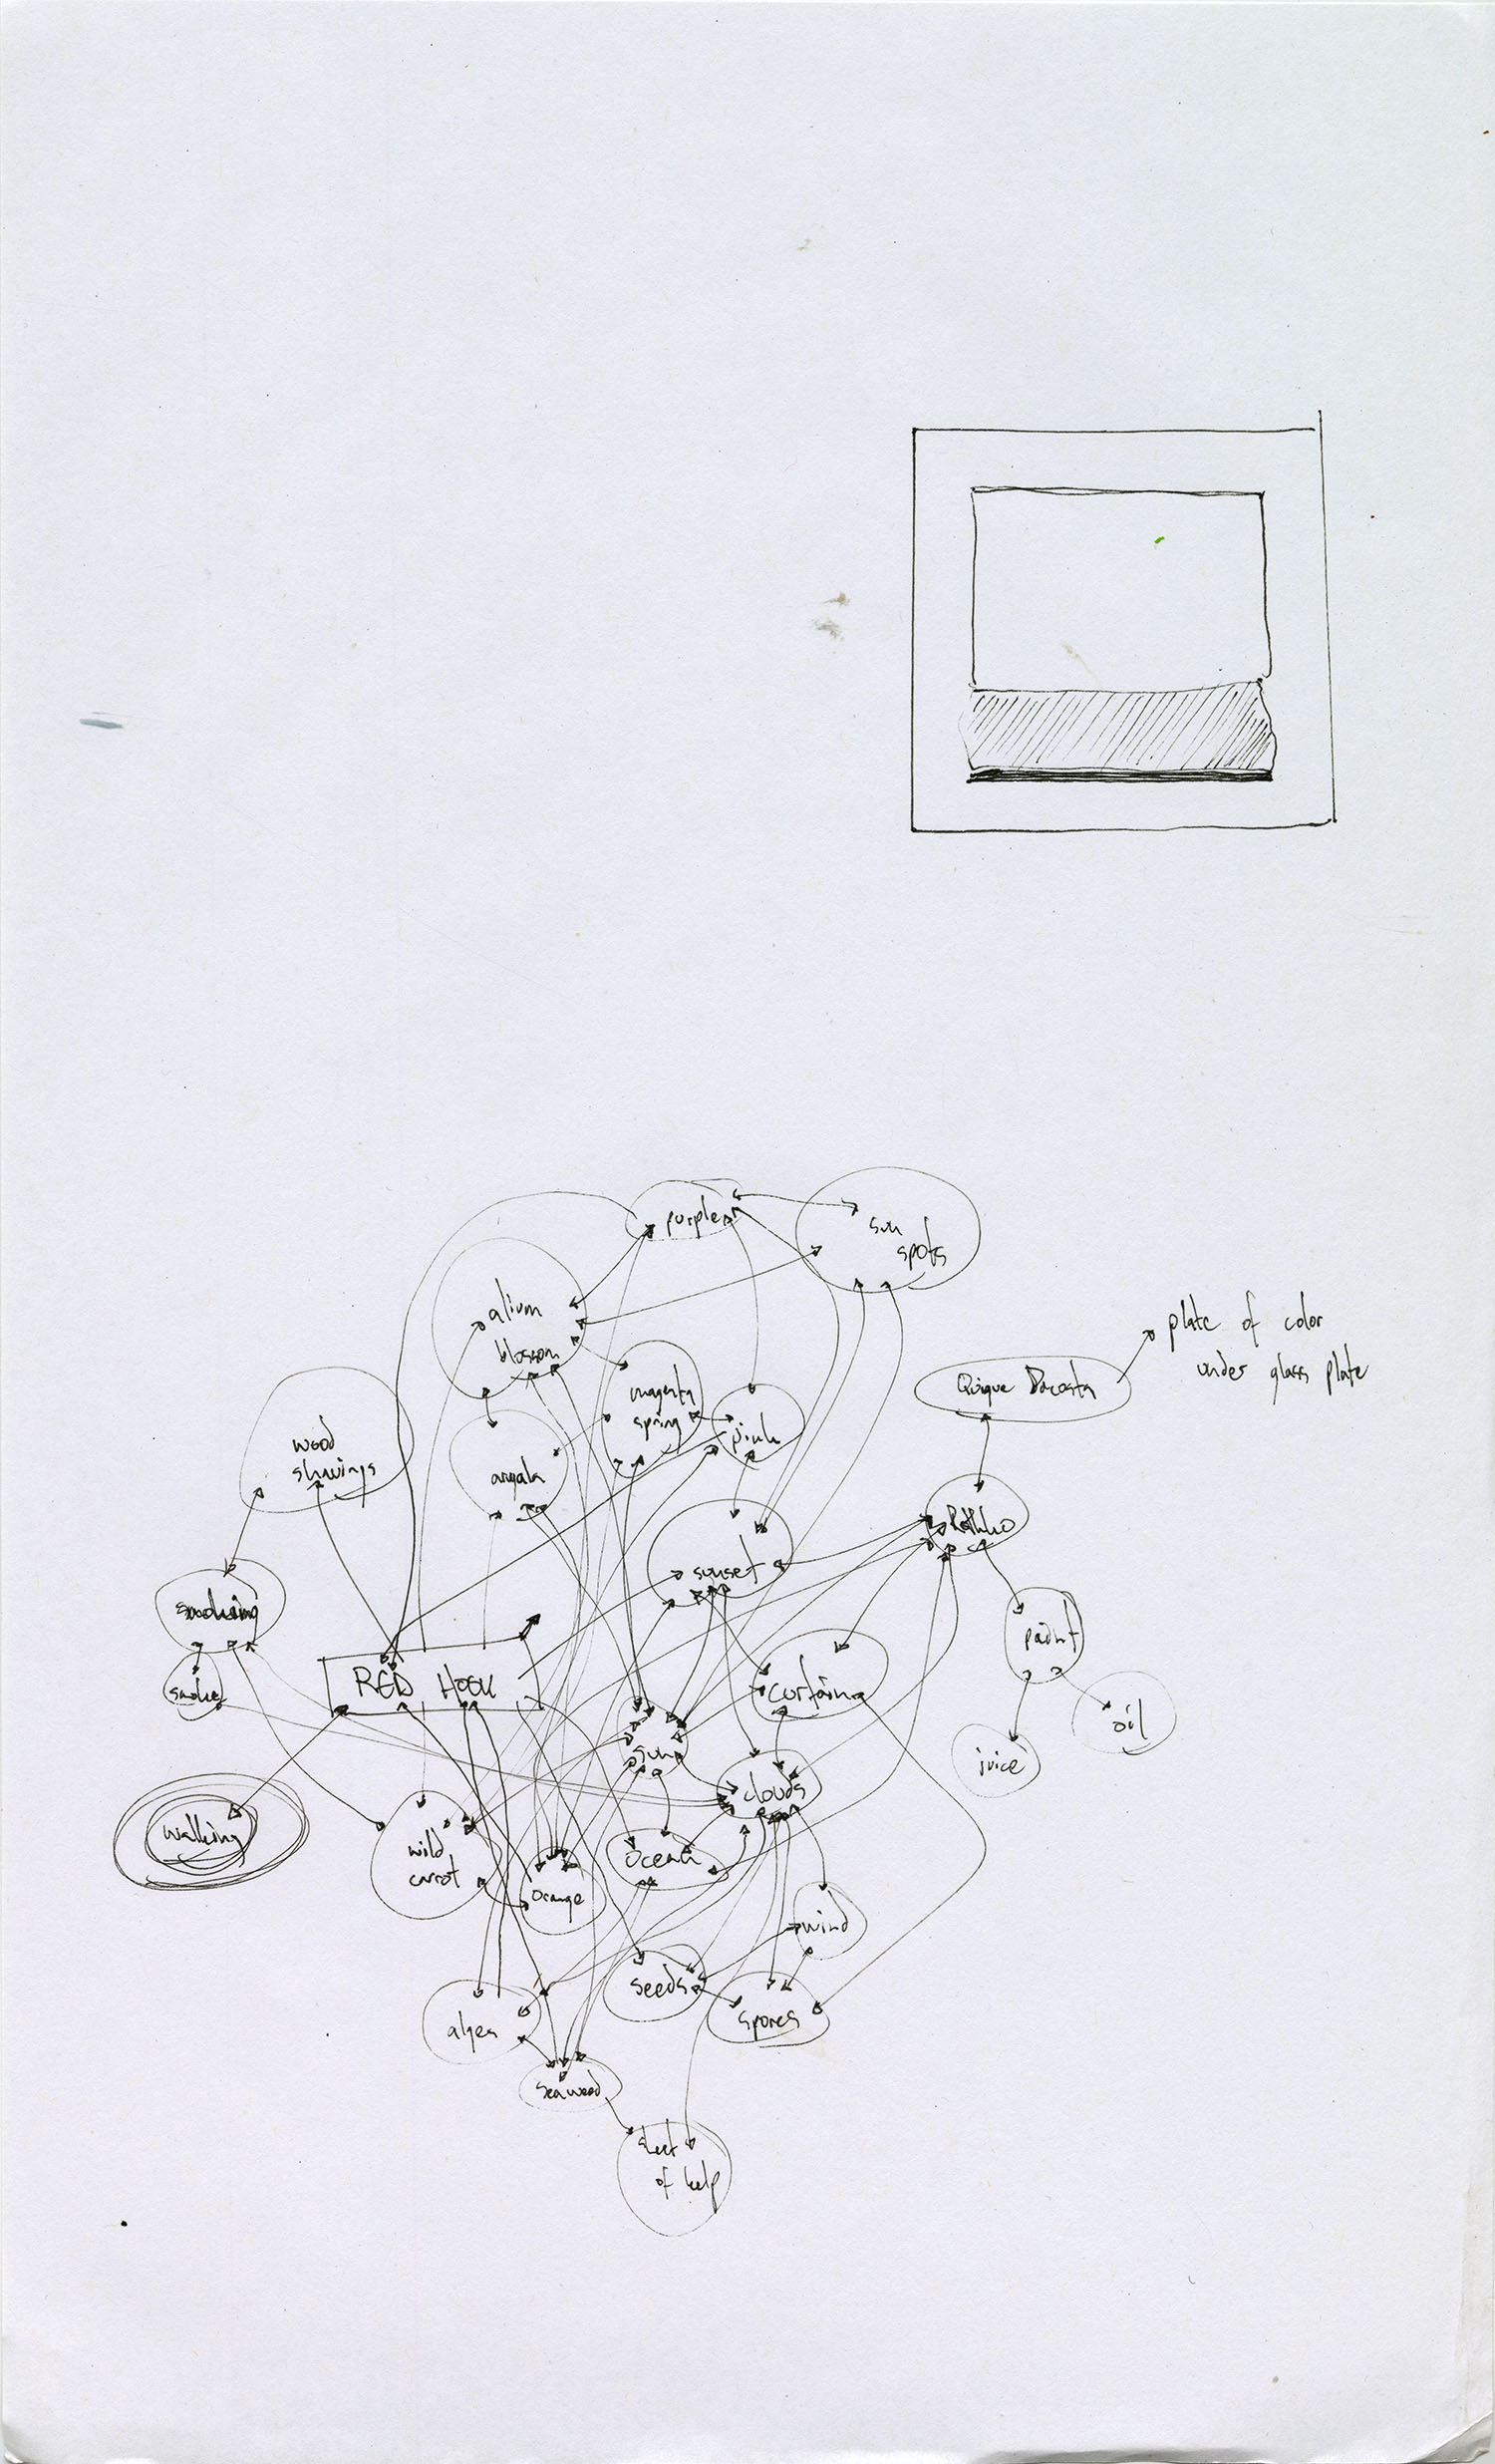 purple
sun
spots
alium
blossom
plate of color
under glass plate
magenta
spring
Quique Dacosta
pink
wood
shavings
Rothko
sunset
smoking
paint
smoke
RED HOOK
curtain
oil
sun
juice
clouds
walking
wild
carrot
ocean
orange
wind
seeds
spores
algea
seaweed
sheet
of kelp